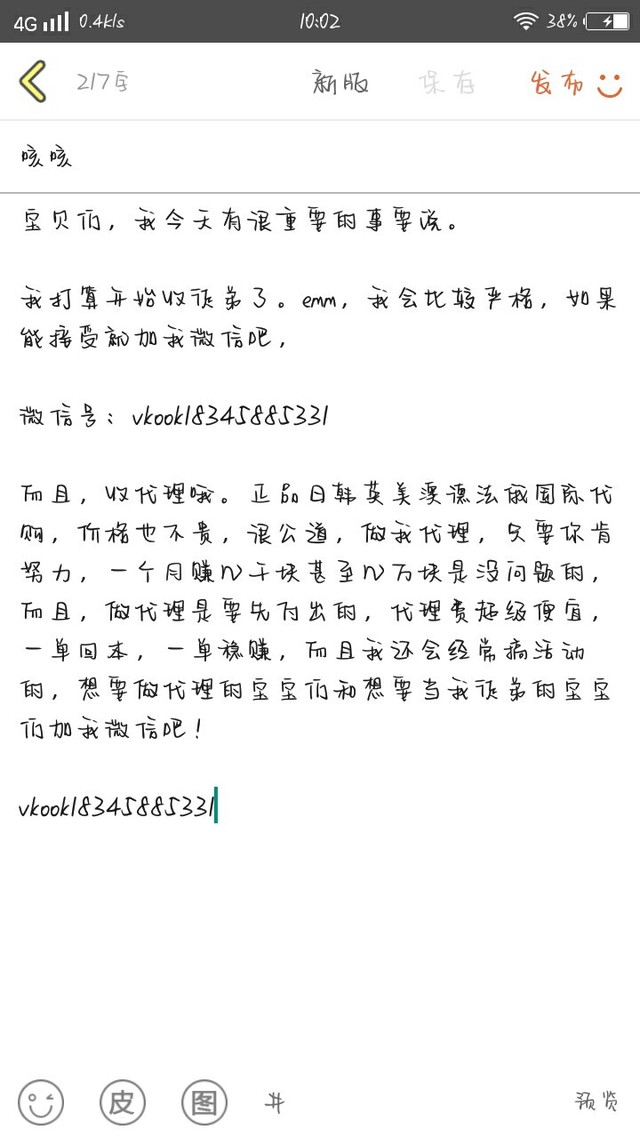 4G 0.4k/s 10:02 38%
217字 新版 保存 发布
咳咳
宝贝们，我今天有很重要的事要说。
我打算开始收徒弟了。emm，我会比较严格，如果
能接受就加我微信吧，
微信号：vkook18345885331
而且，收代理哦。正品日韩英美澳德法俄国际代
购，价格也不贵，很公道，做我代理，只要你肯
努力，一个月赚N千块甚至N万块是没问题的，
而且，做代理是要先付出的，代理费超级便宜，
一单回本，一单稳赚，而且我还会经常搞活动
的，想要做代理的宝宝们和想要当我徒弟的宝宝
们加我微信吧！
vkook18345885331
皮 图 # 预览